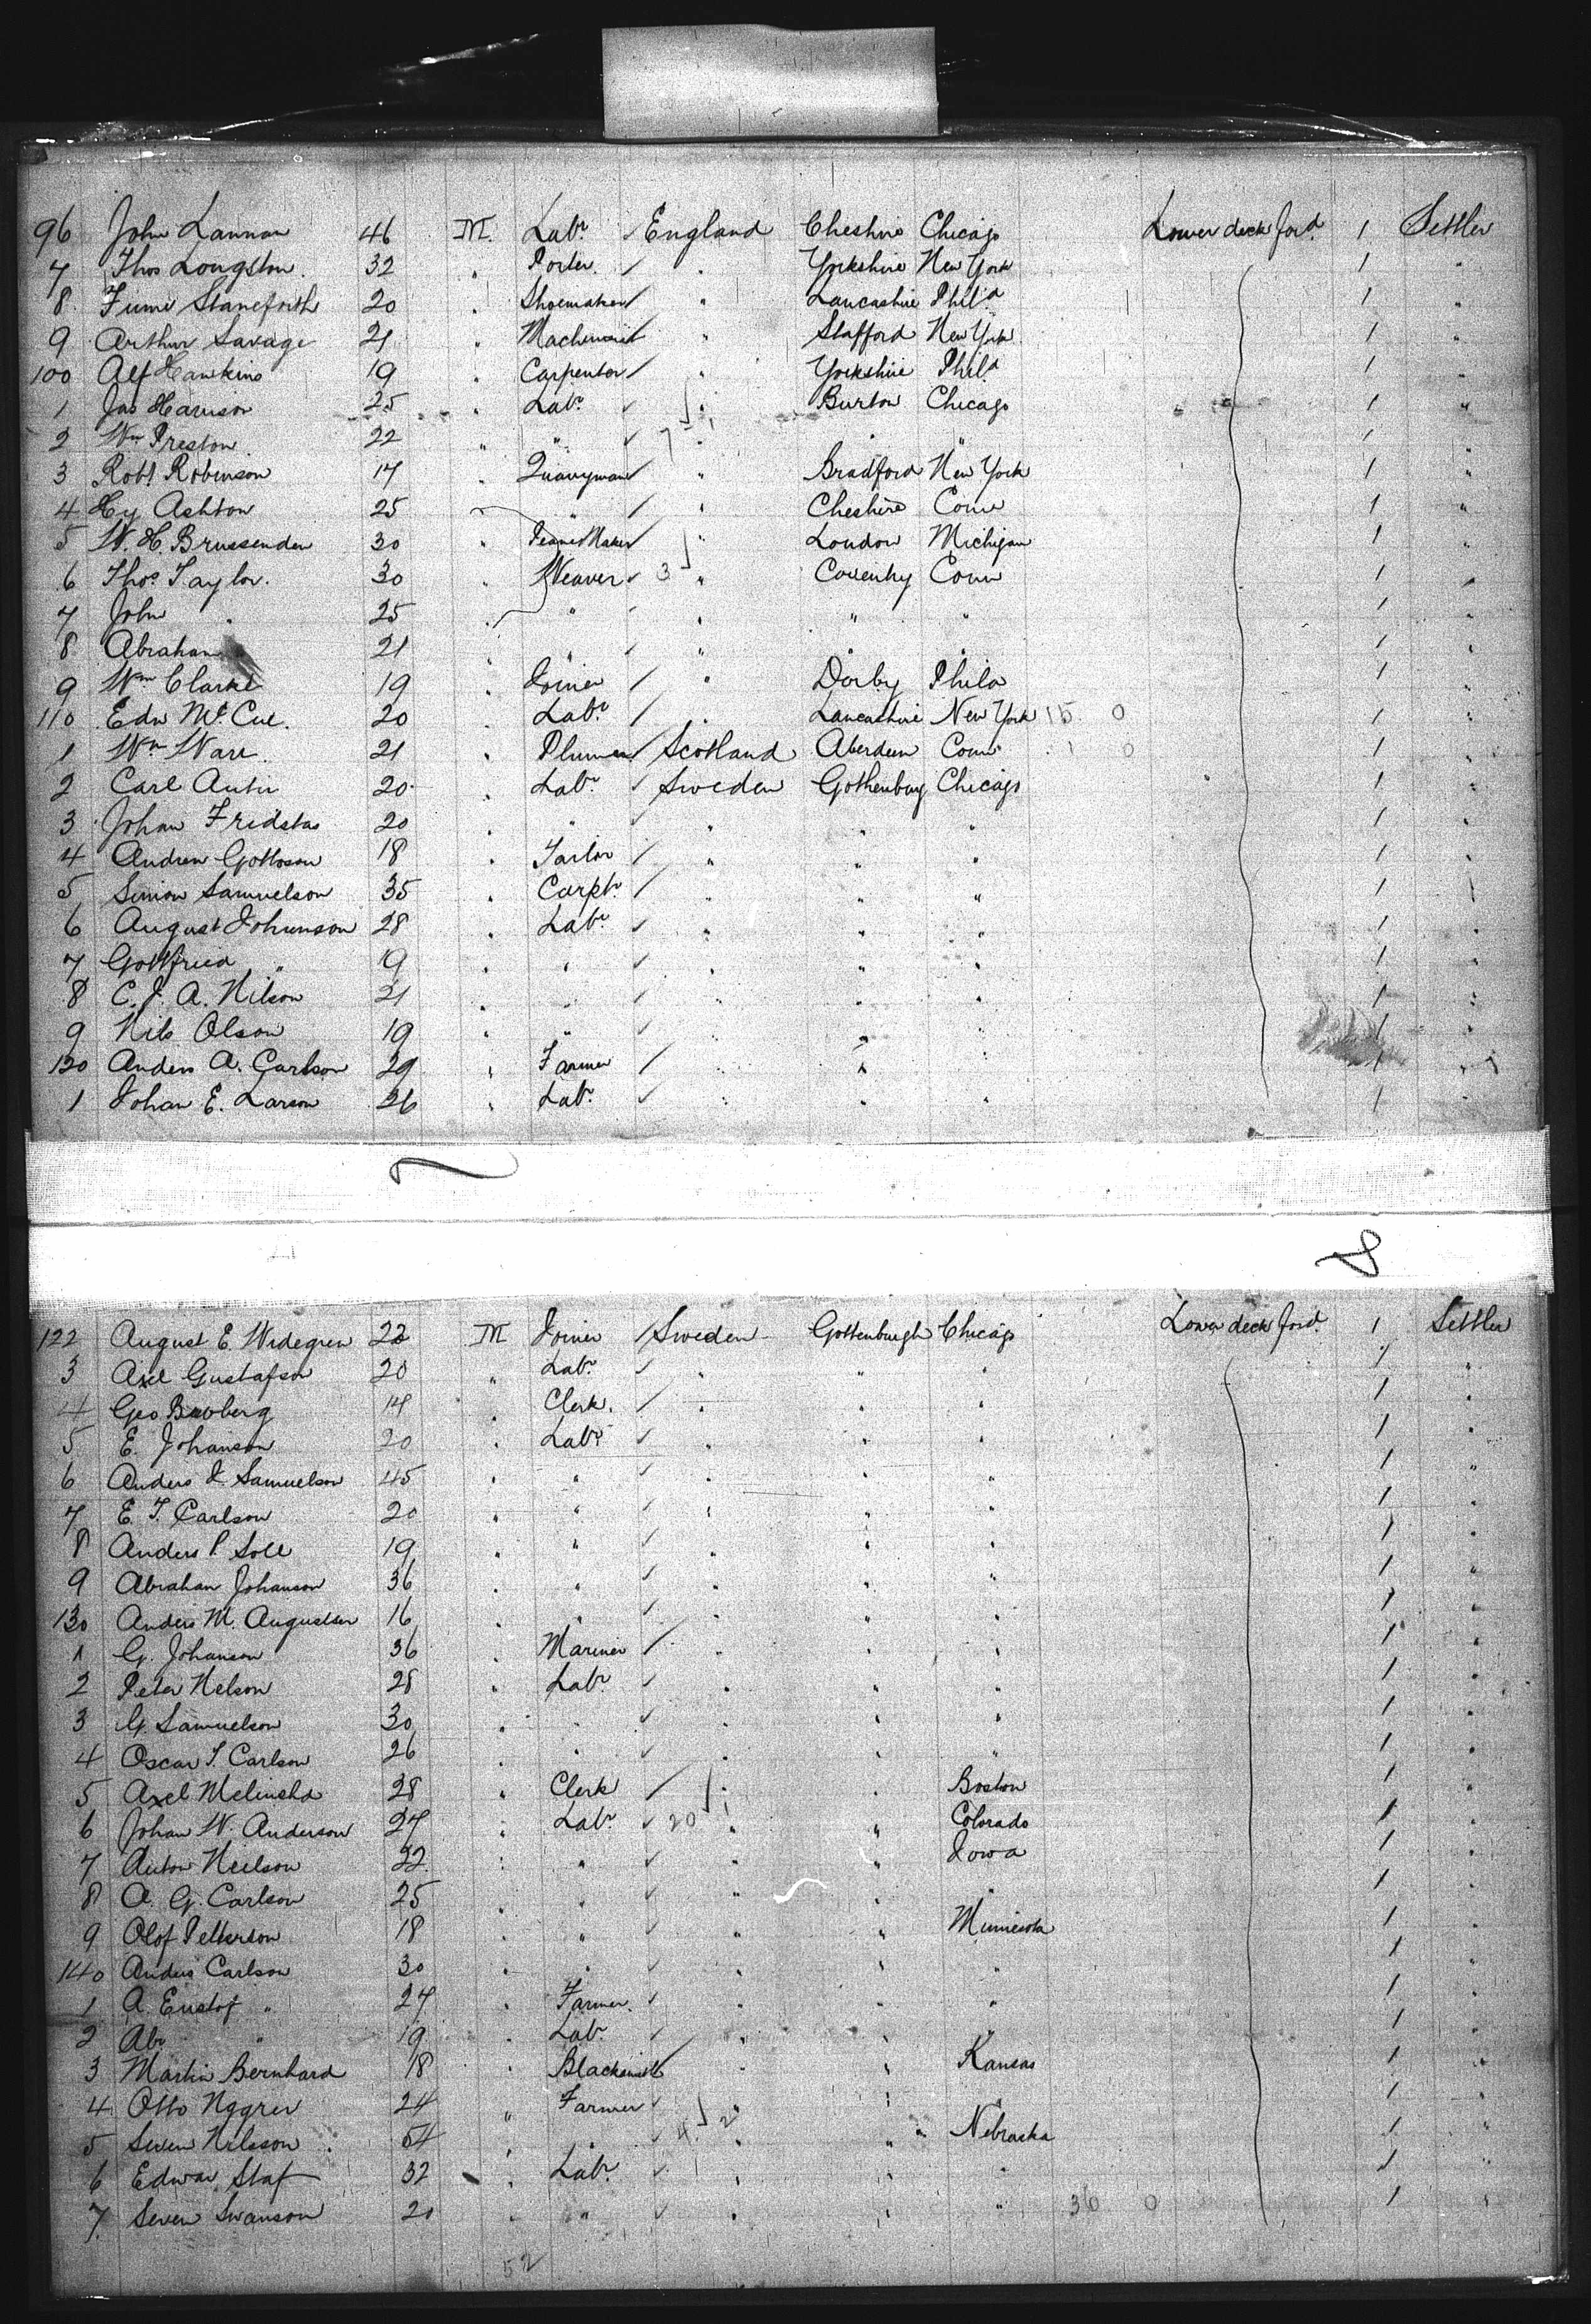 96 John Lannan 46 M. Labr England Cheshire Chicago Lower deck ford. 1 Settler
7 Thos Longston. 32 " Porter. " Yorkshire New York 1 "
8 Staneforth 20 " Shoemaker " Lancashire Phila 1 "
9 Arthur Savage 21 " Machinist " Stafford New York 1 "
100 Alf Hawkins 19 " Carpenter " Yorkshire Phila 1 "
1 Jas Harrison 25 " Labr " Burton Chicago 1 "
2 Wm Preston 22 " " " " " 1 "
3 Robt Robinson 17 " Quarryman " Bradford New York 1 "
4 Hy Ashton 25 " " " Cheshire Conn 1 "
5 W. H. Brussenden 30 " Maker " London Michigan 1 "
6 Thos Taylor. 30 " Weaver 3 " Coventry Conn 1 "
7 John " 25 " " " " " 1 "
8 Abraham 21 " " " " " 1 "
9 Wm Clarke 19 " Joiner " Derby Phila 1 "
110 Edw McCue. 20 " Labr " Lancashire New York 15 0 1 "
1 Wm Ware. 21 " Scotland Aberdeen Conn 1 0 1 "
2 Carl 20 " Labr Sweden Gothenburg Chicago 1 "
3 Johan Fridstas 20 " " " " " 1 "
4 Andrew Gottoson 18 " Tailor " " " 1 "
5 Simon Samuelson 35 " Carptr " " " 1 "
6 August Johunson 28 " Labr " " " 1 "
7 Gottfried " 19 " " " " " 1 "
8 C. J. A. Nilson 21 " " " " " 1 "
9 Nils Olson 19 " " " " " 1 "
120 Anders A. Carlson 29 " Farmer " " " 1 "
1 Johan E. Larson 26 " Labr " " " 1 "
8
122 August E. Widegren 22 M Joiner Sweden Gottenburgh Chicago Lower deck ford. 1 Settler
3 Axel Gustafson 20 " Labr " " " 1 "
4 Geo 14 " Clerk. " " " 1 "
5 E. Johanson 20 " Labr " " " 1 "
6 Anders J. Samuelson 45 " " " " " 1 "
7 E. T. Carlson 20 " " " " " 1 "
8 Anders P. Soll 19 " " " " " 1 "
9 Abraham Johanson 36 " " " " " 1 "
130 Anders M. Augustson 16 " " " " " 1 "
1 G. Johanson 36 " Mariner " " " 1 "
2 Peter Nelson 28 " Labr " " " 1 "
3 G. Samuelson 30 " " " " " 1 "
4 Oscar T. Carlson 26 " " " " " 1 "
5 Axel 28 " Clerk " " Boston 1 "
6 Johan W. Anderson 27 " Labr 20 1 " " Colorado 1 "
7 Anton Neelson 22 " " " " Iowa 1 "
8 A. G. Carlson 25 " " " " " 1 "
9 Olof Petterson 18 " " " " Minnesota 1 "
140 Anders Carlson 30 " " " " " 1 "
1 A. " 27 " Farmer. " " " 1 "
2 Abr " 19 " Labr " " " 1 "
3 Martin Bernhard 18 " Blacksmith " " Kansas 1 "
4 Otto 24 " Farmer 2 " " 1 "
5 Seven Nilsson 54 " " 4 " " Nebraska 1 "
6 Edwar Staf 32 " Labr " " " 1 "
7 Seven Swanson 20 " " " " " 36 0 1 "
52